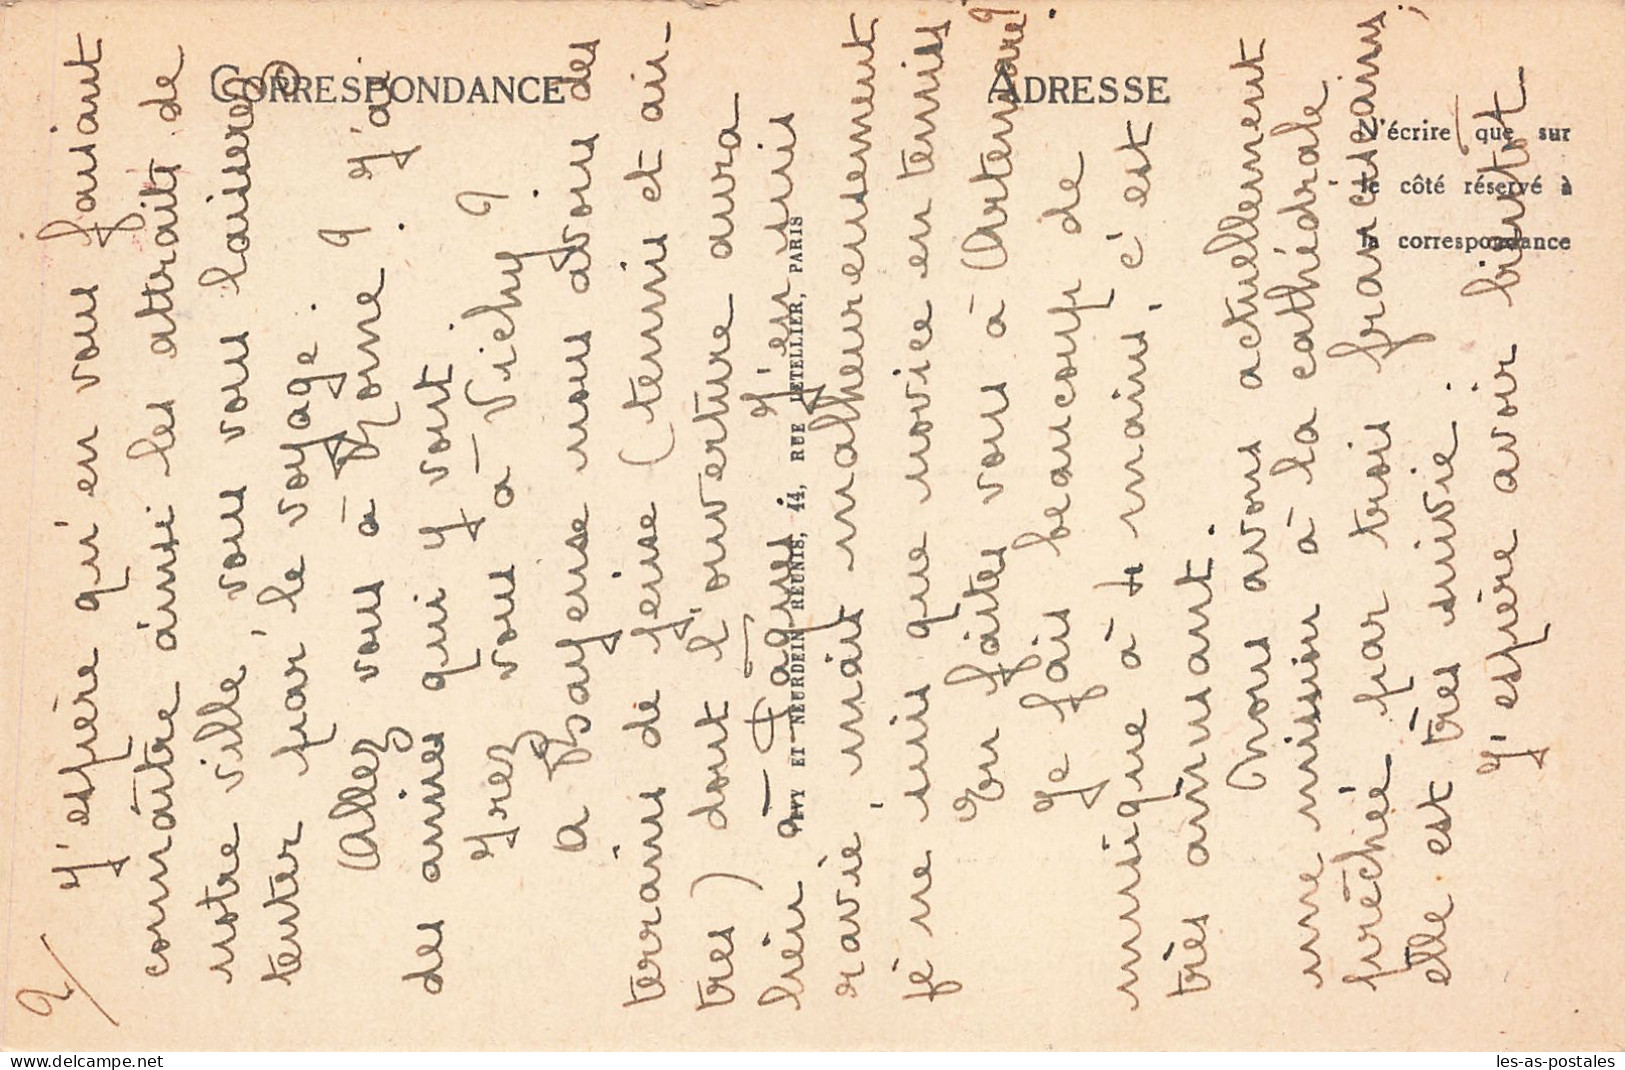 2/
J'espère qu'en vous faisant
connaître ainsi les attraits de
notre ville vous vous laisserez
tenter par le voyage.
Allez vous à Rome ? J'ai
des amies qui y vont.
Irez vous à Vichy ?
A Bayeuse nous avons des
terrains de jeux (tennis et au-
tres) dont l'ouverture aura
lieu à Pâques. J'en suis
ravie, mais malheureusement
je ne suis que novice en tennis.
En faites vous à Artemare ?
Je fais beaucoup de
musique à 4 mains, c'est
très amusant.
Nous avons actuellement
une mission à la cathédrale
prêchée par trois franciscains,
elle est très suivie.
J'espère avoir bientôt
CORRESPONDANCE
ADRESSE
N'écrire que sur
le côté réservé à
la correspondance
LEVY ET NEURDEIN REUNIS, 44, RUE LETELLIER, PARIS
delcampe.net
les-as-postales